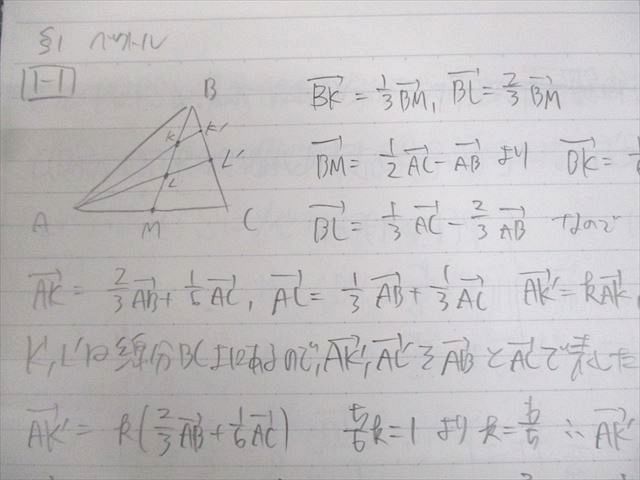 §1 ベクトル
1-1
B
K
K'
L
L'
A
M
C
$\overrightarrow{BK} = \frac{1}{3}\overrightarrow{BM}, \overrightarrow{BL} = \frac{2}{3}\overrightarrow{BM}$
$\overrightarrow{BM} = \frac{1}{2}\overrightarrow{AC} - \overrightarrow{AB}$ より $\overrightarrow{BK} =$
$\overrightarrow{BL} = \frac{1}{3}\overrightarrow{AC} - \frac{2}{3}\overrightarrow{AB}$ なので
$\overrightarrow{AK} = \frac{2}{3}\overrightarrow{AB} + \frac{1}{6}\overrightarrow{AC}, \overrightarrow{AL} = \frac{1}{3}\overrightarrow{AB} + \frac{1}{3}\overrightarrow{AC}$ $\overrightarrow{AK'} = k\overrightarrow{AK},$
K', L'は線分BC上にあるので, $\overrightarrow{AK'}, \overrightarrow{AL'}$ を $\overrightarrow{AB}$ と $\overrightarrow{AC}$ で表した
$\overrightarrow{AK'} = k\left(\frac{2}{3}\overrightarrow{AB} + \frac{1}{6}\overrightarrow{AC}\right)$ $\frac{5}{6}k = 1$ より $k = \frac{6}{5}$ ∴ $\overrightarrow{AK'}$